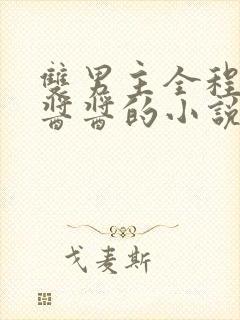 雙男主全程
醬醬的小說
戈麦斯